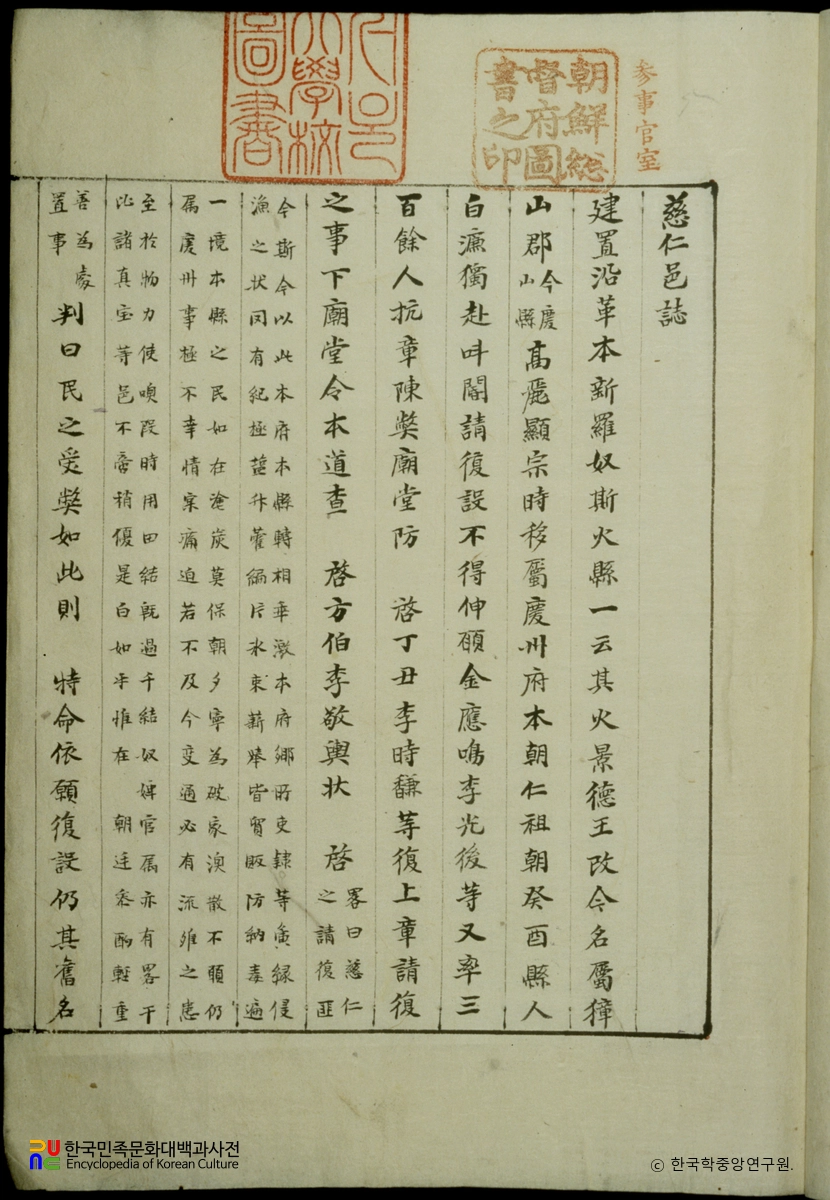 慈仁邑誌
建置沿革本新羅奴斯火縣一云其火景德王改今名屬獐
山郡今慶山縣高麗顯宗時移屬慶州府本朝仁祖朝癸酉縣人
白濂獨赴叫閽請復設不得伸願金應鳴李光後等又率三
百餘人抗章陳獘廟堂防 啓丁丑李時馦等復上章請復
之事下廟堂令本道查 啓方伯李敬輿狀 啓畧曰慈仁之請復匪
今斯今以此本府本縣轉相牽激本府鄉所吏隸等夤緣侵
漁之狀罔有紀極蓝升藿編片氷束薪捧皆貿販防納毒遍
一境本縣之民如在塗炭莫保朝夕寧為破家渙散不願仍
属慶州事極不幸情案痛迫若不及今变通必有流難之患
至於物力使喚段時用田結旣過千結奴婢官属亦有畧干
比諸真宝等邑不啻稍優是白如乎惟在 朝廷叅酌輕重
善為處置事 判曰民之受獘如此則 特命依願復設仍其舊名
参事官室
朝鮮總督府圖書之印
大學校
圖書
한국민족문화대백과사전
Encyclopedia of Korean Culture
ⓒ 한국학중앙연구원.